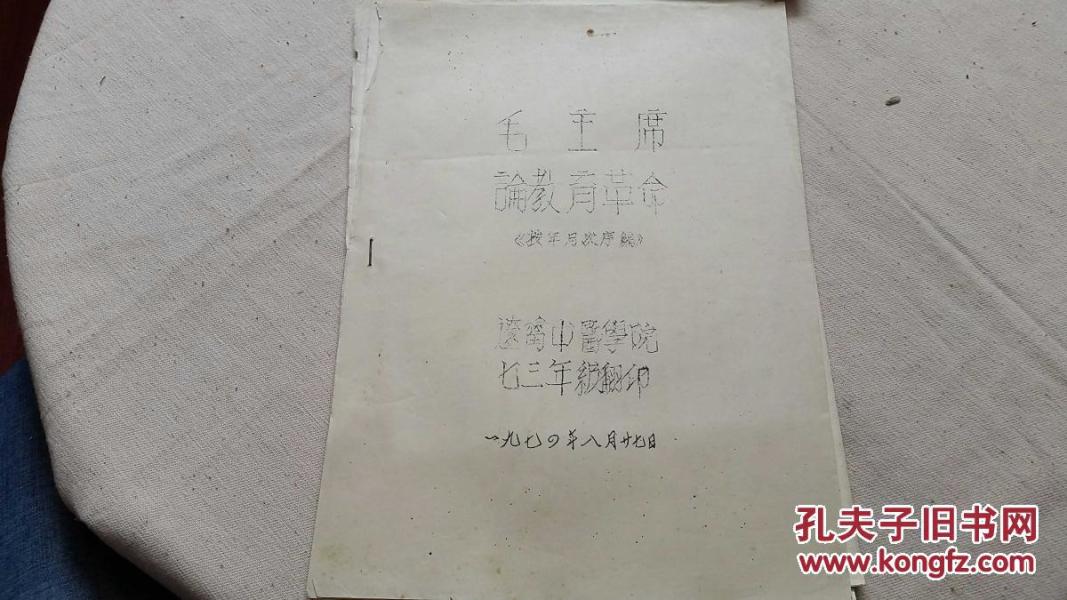 毛主席
論教育革命
《按年月次序編》
遼寧中醫學院
七三年級翻印
一九七四年八月廿七日
孔夫子旧书网
www.kongfz.com